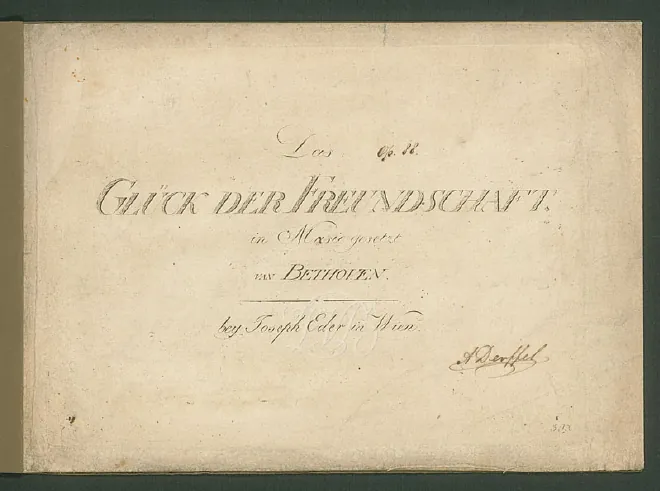 Das Op. 88.
GLÜCK DER FREUNDSCHAFT.
in Music gesetzt
VAN BETHOVEN.
bey Joseph Eder in Wien.
A Derffel